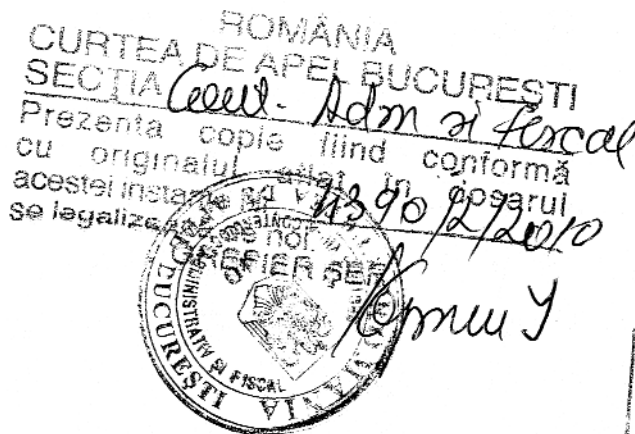 ROMÂNIA
CURTEA DE APEL BUCUREȘTI
SECȚIA Cont. Adm și fiscal
Prezenta copie fiind conformă
cu originalul aflat în dosarul
acestei instanțe 4390/2/2010
se legalizează de noi.
GREFIER ȘEF
ADMINISTRATIV ȘI FISCAL
BUCUREȘTI
ROMANIA